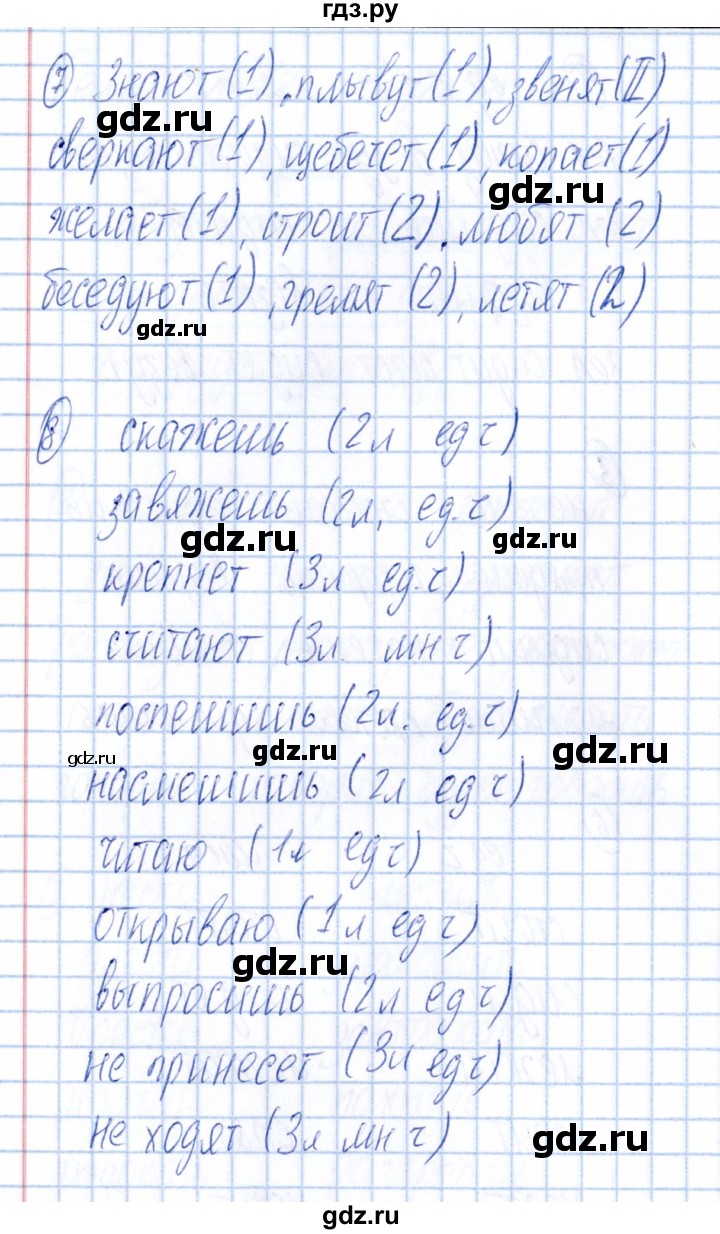 гдз.ру
7 Знают (1), плывут (1), звенят (II)
gdz.ru
сверкают (1), щебечет (1), копает (1)
gdz.ru
желает (1), строит (2), любят (2)
беседуют (1), гремят (2), летят (2)
gdz.ru
8 скажешь (2л ед ч)
завяжешь (2л, ед.ч)
gdz.ru gdz.ru
крепнет (3л ед.ч)
считают (3л. мн ч)
поспешишь (2л. ед.ч)
gdz.ru gdz.ru gdz.ru
насмешишь (2л ед ч)
читаю (1л ед ч)
открываю (1л ед ч)
gdz.ru
выпросишь (2л ед ч)
не принесет (3л ед ч)
не ходят (3л мн ч)
gdz.ru
gdz.ru